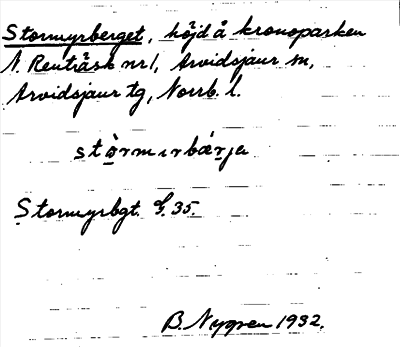 Stormyrberget, höjd å kronoparken
N. Renträsk nr 1, Arvidsjaur sn,
Arvidsjaur tg, Norrb. l.
stòrmırbærja
Stormyrbgt. G. 35.
B. Nygren 1932.